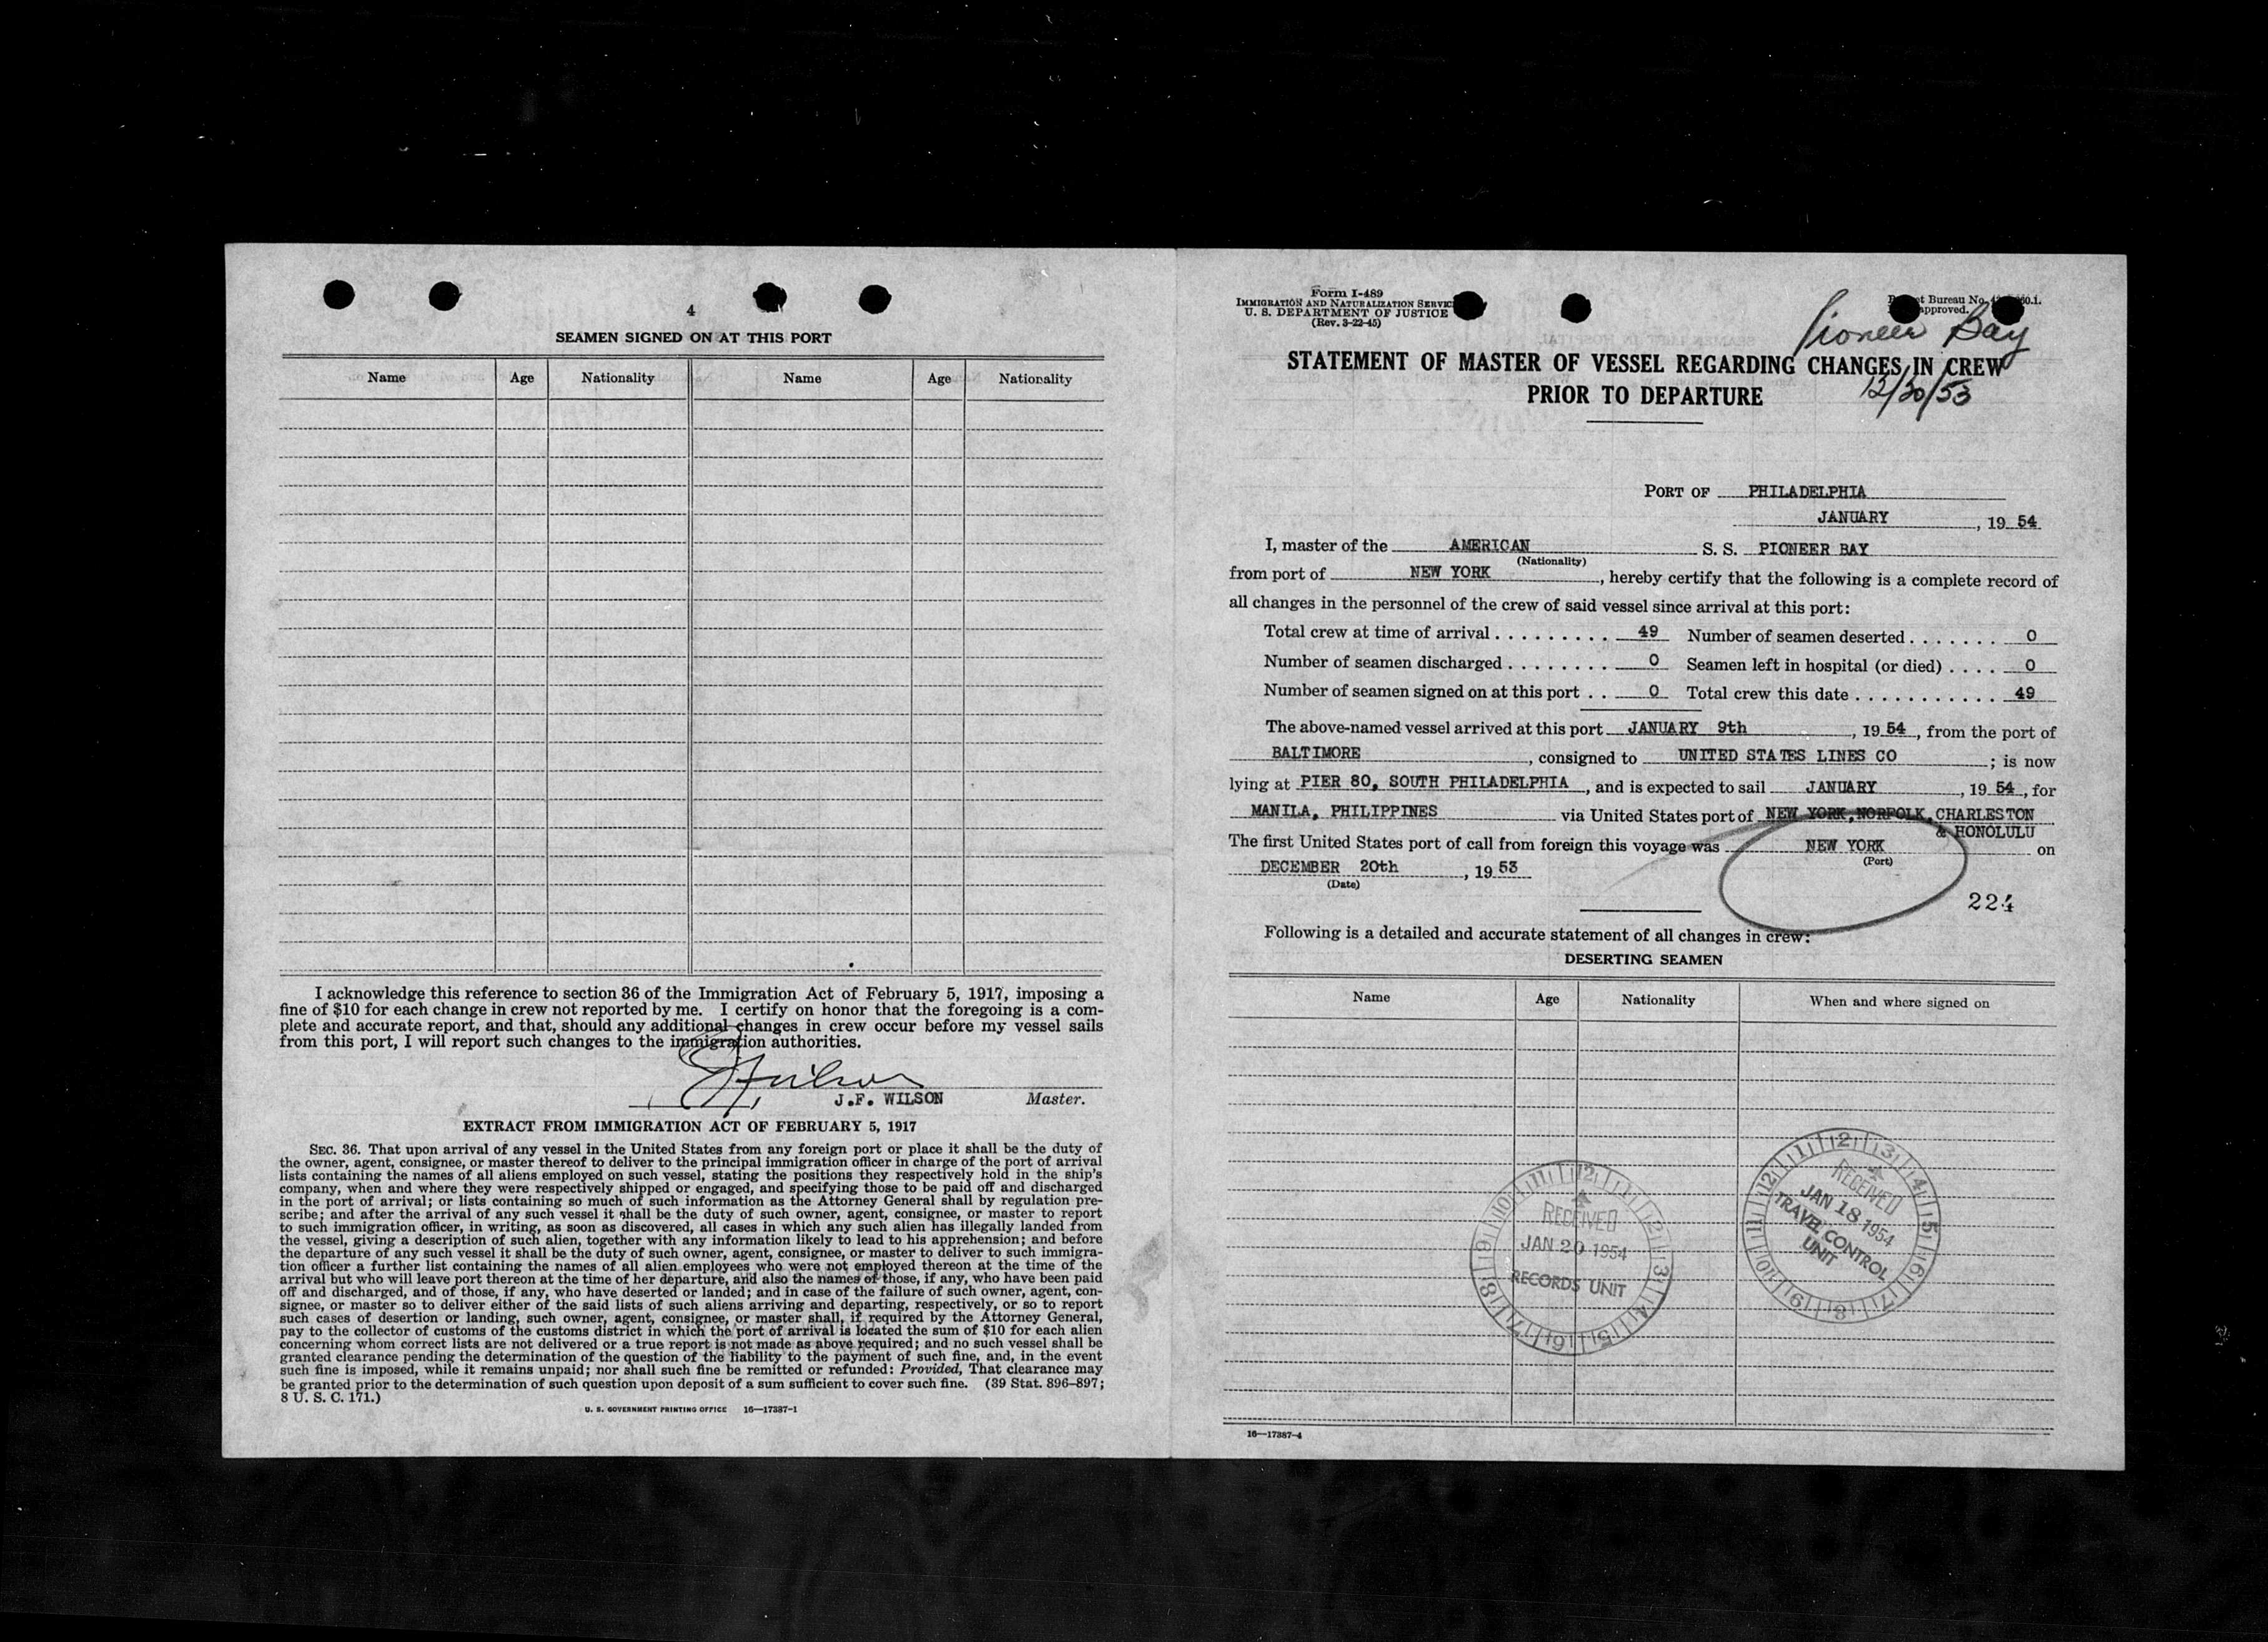 4
SEAMEN SIGNED ON AT THIS PORT
Name Age Nationality Name Age Nationality
I acknowledge this reference to section 36 of the Immigration Act of February 5, 1917, imposing a
fine of $10 for each change in crew not reported by me. I certify on honor that the foregoing is a com-
plete and accurate report, and that, should any additional changes in crew occur before my vessel sails
from this port, I will report such changes to the immigration authorities.
J.F. WILSON Master.
EXTRACT FROM IMMIGRATION ACT OF FEBRUARY 5, 1917
SEC. 36. That upon arrival of any vessel in the United States from any foreign port or place it shall be the duty of
the owner, agent, consignee, or master thereof to deliver to the principal immigration officer in charge of the port of arrival
lists containing the names of all aliens employed on such vessel, stating the positions they respectively hold in the ship's
company, when and where they were respectively shipped or engaged, and specifying those to be paid off and discharged
in the port of arrival; or lists containing so much of such information as the Attorney General shall by regulation pre-
scribe; and after the arrival of any such vessel it shall be the duty of such owner, agent, consignee, or master to report
to such immigration officer, in writing, as soon as discovered, all cases in which any such alien has illegally landed from
the vessel, giving a description of such alien, together with any information likely to lead to his apprehension; and before
the departure of any such vessel it shall be the duty of such owner, agent, consignee, or master to deliver to such immigra-
tion officer a further list containing the names of all alien employees who were not employed thereon at the time of the
arrival but who will leave port thereon at the time of her departure, and also the names of those, if any, who have been paid
off and discharged, and of those, if any, who have deserted or landed; and in case of the failure of such owner, agent, con-
signee, or master so to deliver either of the said lists of such aliens arriving and departing, respectively, or so to report
such cases of desertion or landing, such owner, agent, consignee, or master shall, if required by the Attorney General,
pay to the collector of customs of the customs district in which the port of arrival is located the sum of $10 for each alien
concerning whom correct lists are not delivered or a true report is not made as above required; and no such vessel shall be
granted clearance pending the determination of the question of the liability to the payment of such fine, and, in the event
such fine is imposed, while it remains unpaid; nor shall such fine be remitted or refunded: Provided, That clearance may
be granted prior to the determination of such question upon deposit of a sum sufficient to cover such fine. (39 Stat. 896–897;
8 U. S. C. 171.)
U. S. GOVERNMENT PRINTING OFFICE 16—17387-1
Form I-489
IMMIGRATION AND NATURALIZATION SERVICE
U. S. DEPARTMENT OF JUSTICE
(Rev. 3-22-45)
Bureau No.
approved.
Pioneer Bay
STATEMENT OF MASTER OF VESSEL REGARDING CHANGES IN CREW
PRIOR TO DEPARTURE
12/20/53
PORT OF PHILADELPHIA
JANUARY , 19 54
I, master of the AMERICAN S. S. PIONEER BAY
(Nationality)
from port of NEW YORK , hereby certify that the following is a complete record of
all changes in the personnel of the crew of said vessel since arrival at this port:
Total crew at time of arrival . . . . . . . . . 49 Number of seamen deserted . . . . . . . 0
Number of seamen discharged . . . . . . . . 0 Seamen left in hospital (or died) . . . . 0
Number of seamen signed on at this port . . 0 Total crew this date . . . . . . . . . . . . 49
The above-named vessel arrived at this port JANUARY 9th , 19 54 , from the port of
BALTIMORE , consigned to UNITED STATES LINES CO ; is now
lying at PIER 80, SOUTH PHILADELPHIA , and is expected to sail JANUARY , 19 54 , for
MANILA, PHILIPPINES via United States port of NEW YORK, NORFOLK, CHARLESTON
& HONOLULU
The first United States port of call from foreign this voyage was NEW YORK on
(Port)
DECEMBER 20th , 19 53
(Date)
224
Following is a detailed and accurate statement of all changes in crew:
DESERTING SEAMEN
Name Age Nationality When and where signed on
RECEIVED
JAN 18 1954
TRAVEL CONTROL
UNIT
RECEIVED
JAN 20 1954
RECORDS UNIT
16—17387-4